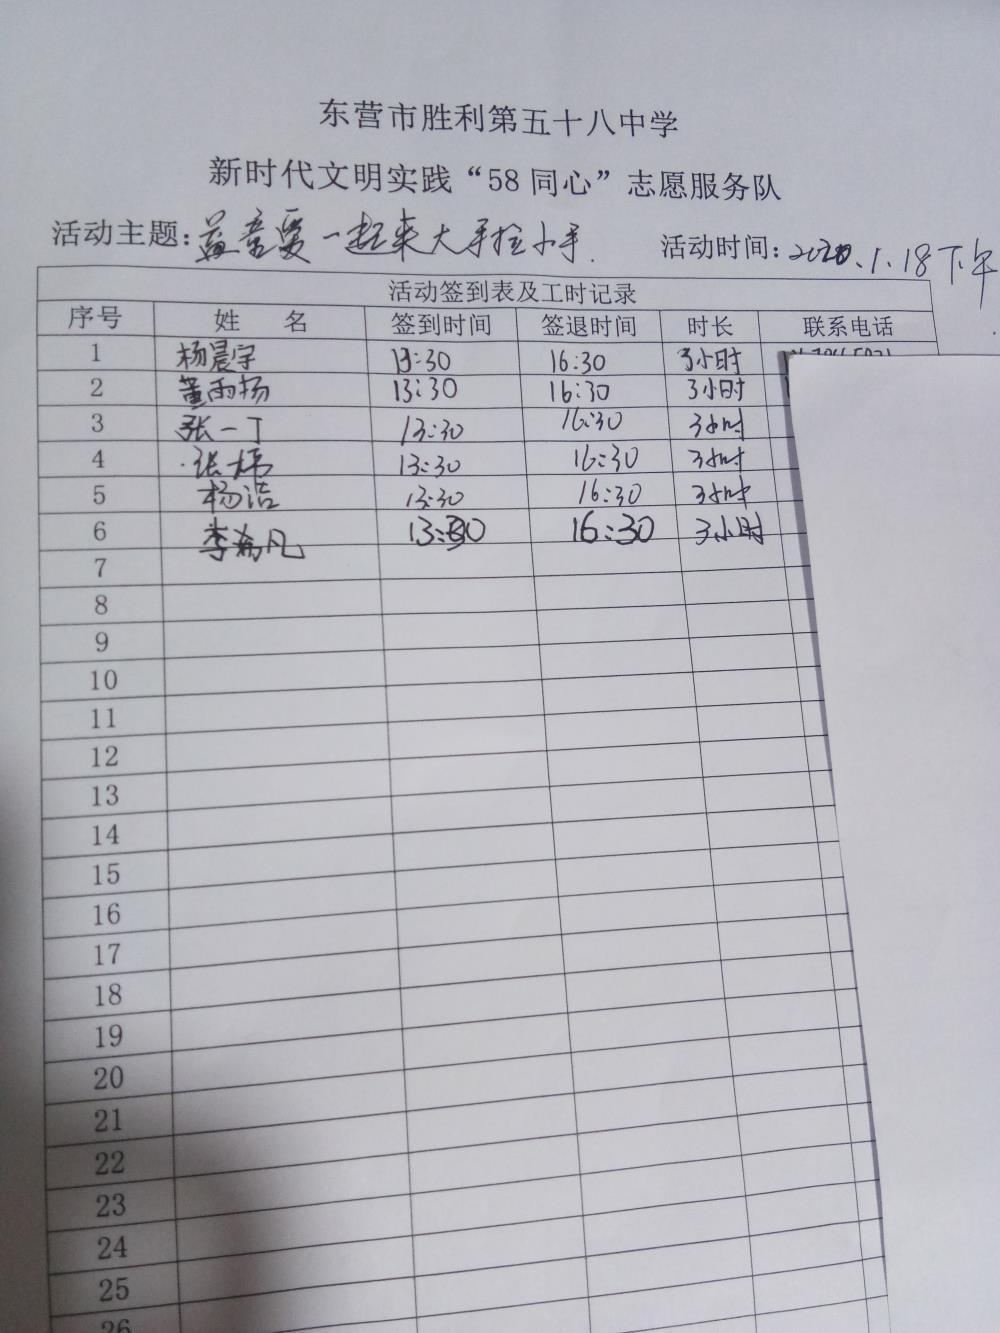 东营市胜利第五十八中学
新时代文明实践“58同心”志愿服务队
活动主题：益童爱一起来大手拉小手. 活动时间：2020.1.18下午
活动签到表及工时记录
序号 姓 名 签到时间 签退时间 时长 联系电话
1 杨晨宇 13:30 16:30 3小时
2 董雨扬 13:30 16:30 3小时
3 张一丁 13:30 16:30 3小时
4 张炜 13:30 16:30 3小时
5 杨浩 13:30 16:30 3小时
6 李希凡 13:30 16:30 3小时
7
8
9
10
11
12
13
14
15
16
17
18
19
20
21
22
23
24
25
26